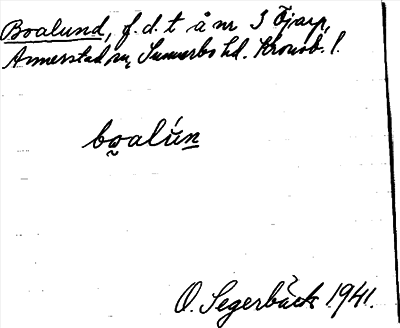 Boalund, f.d. t å nr 3 Öjarp,
Annerstad sn, Sunnerbo hd. Kronob. l.
boalún
O. Segerbäck 1941.